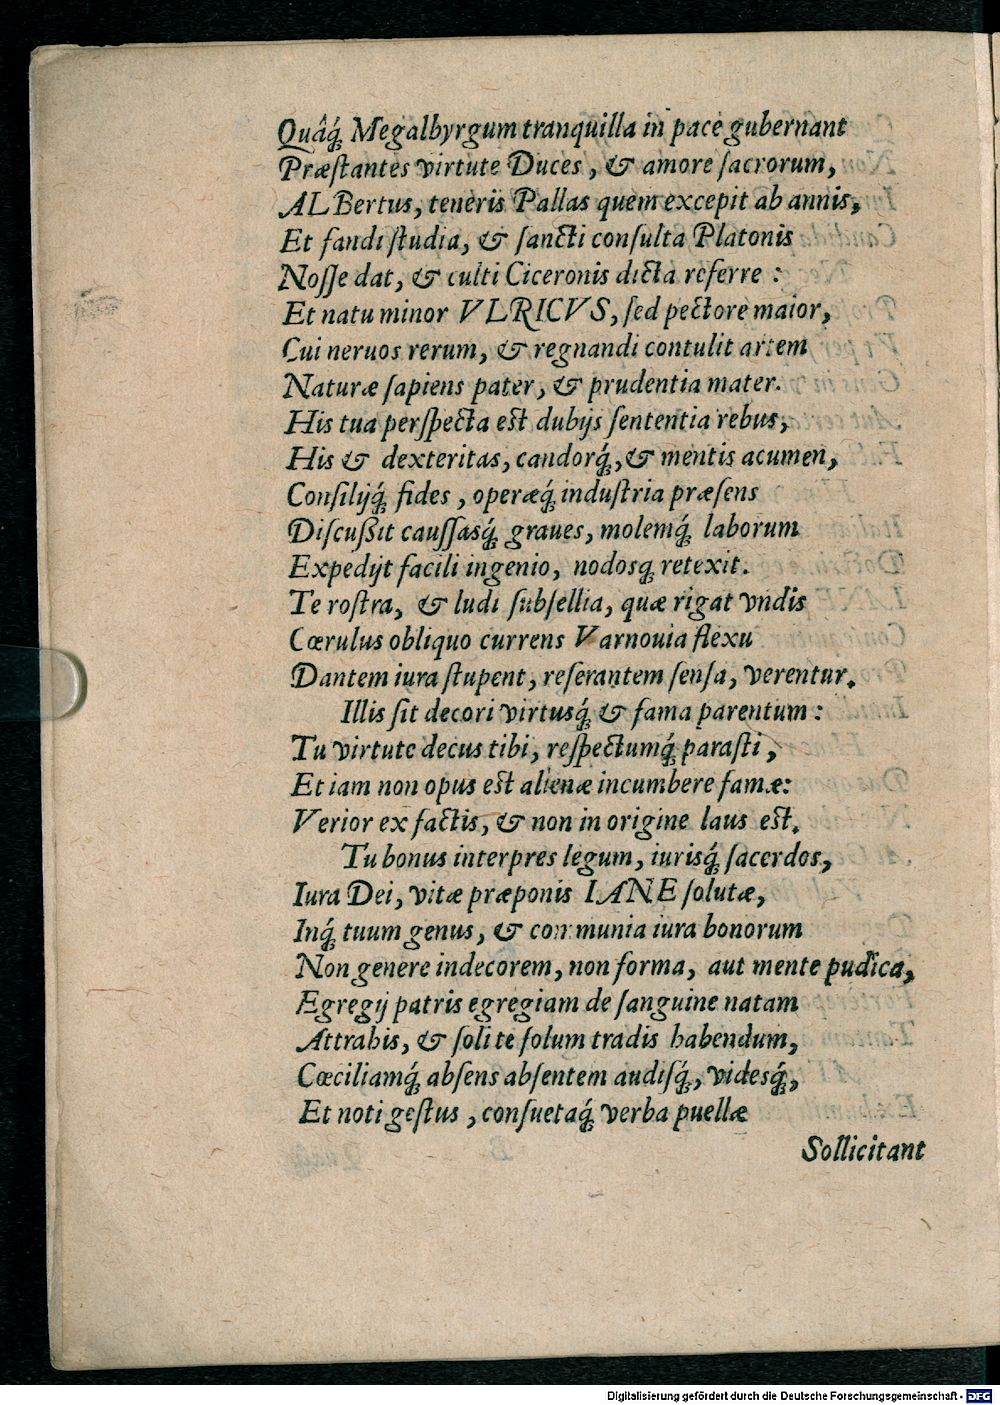 Quâq́; Megalbyrgum tranquilla in pace gubernant
Præſtantes virtute Duces, & amore ſacrorum,
ALBertus, teneris Pallas quem excepit ab annis,
Et fandi ſtudia, & ſancti conſulta Platonis
Noſſe dat, & culti Ciceronis dicta referre :
Et natu minor VLRICVS, ſed pectore maior,
Cui neruos rerum, & regnandi contulit artem
Naturæ ſapiens pater, & prudentia mater.
His tua perſpecta eſt dubijs ſententia rebus,
His & dexteritas, candorq́;, & mentis acumen,
Conſilijq́; fides, operæq́; induſtria præſens
Diſcuſsit cauſſasq́; graues, molemq́; laborum
Expedijt facili ingenio, nodosq; retexit.
Te roſtra, & ludi ſubſellia, quæ rigat vndis
Cœrulus obliquo currens Varnouia flexu
Dantem iura ſtupent, reſerantem ſenſa, verentur.
Illis ſit decori virtusq́; & fama parentum :
Tu virtute decus tibi, reſpectumq́; paraſti,
Et iam non opus eſt alienæ incumbere famæ:
Verior ex factis, & non in origine laus eſt.
Tu bonus interpres legum, iurisq́; ſacerdos,
Iura Dei, vitæ præponis IANE ſolutæ,
Inq́; tuum genus, & communia iura bonorum
Non genere indecorem, non forma, aut mente pudica,
Egregij patris egregiam de ſanguine natam
Attrahis, & ſoli te ſolum tradis habendum,
Cœciliamq́; abſens abſentem audiſq́;, videsq́;,
Et noti geſtus, conſuetaq́; verba puellæ
Sollicitant
Digitalisierung gefördert durch die Deutsche Forschungsgemeinschaft - DFG